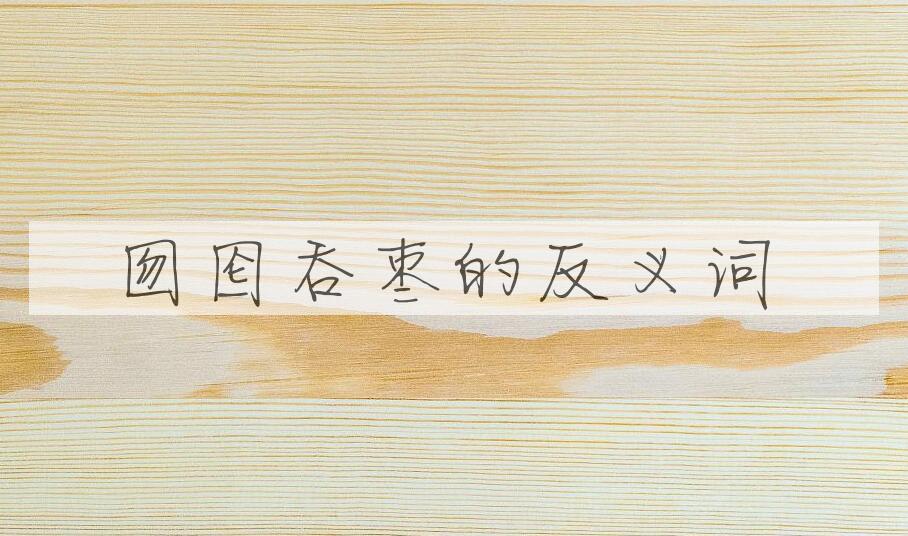 囫囵吞枣的反义词